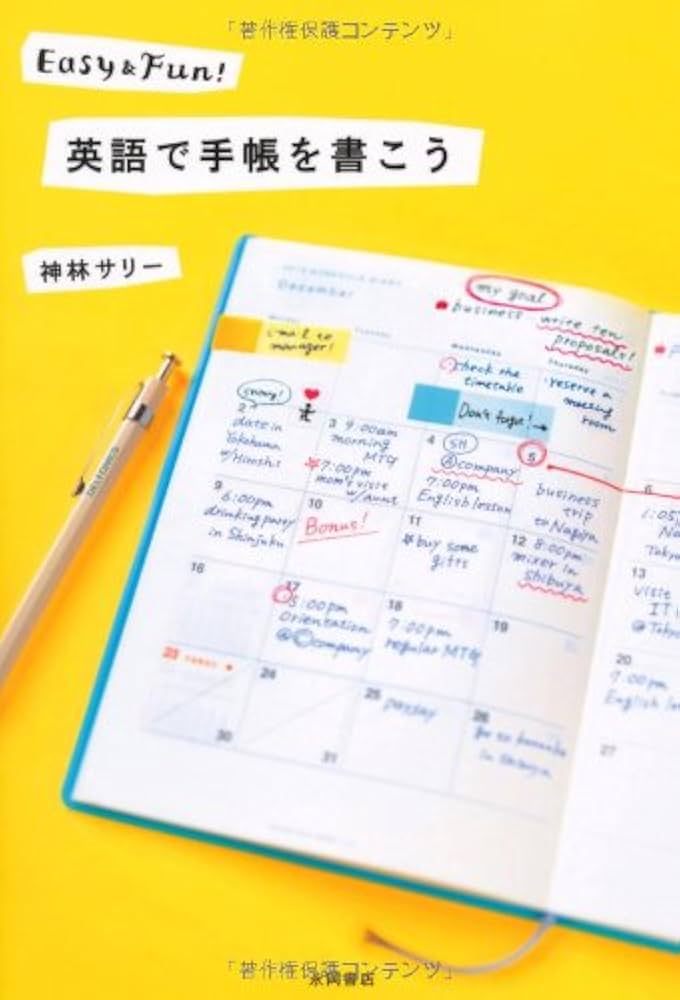 「著作権保護コンテンツ」
Easy & Fun!
英語で手帳を書こう
神林サリー
December
my goal
business write ten
proposals!
e-mail to
manager!
Wednesday
Thursday
check the
timetable
reserve a
meeting
room
Don't forget! →
2
date in
Yokohama
w/Hiroshi
3 9:00am
morning
MTG
7:00pm
mom's visit
w/aunt
4
@company
7:00pm
English lesson
5
business
trip
to Nagoya
6
9
6:00pm
drinking party
in Shinjuku
10
Bonus!
11
buy some
gifts
12 8:00pm
mixer in
Shibuya
13
visit
IT
@Tokyo
16
17
5:00pm
Orientation
@company
18
7:00pm
regular MTG
19
20
7:00pm
English
23
24
25 payday
26
in Shibuya
27
30
31
「著作権保護コンテンツ」
永岡書店